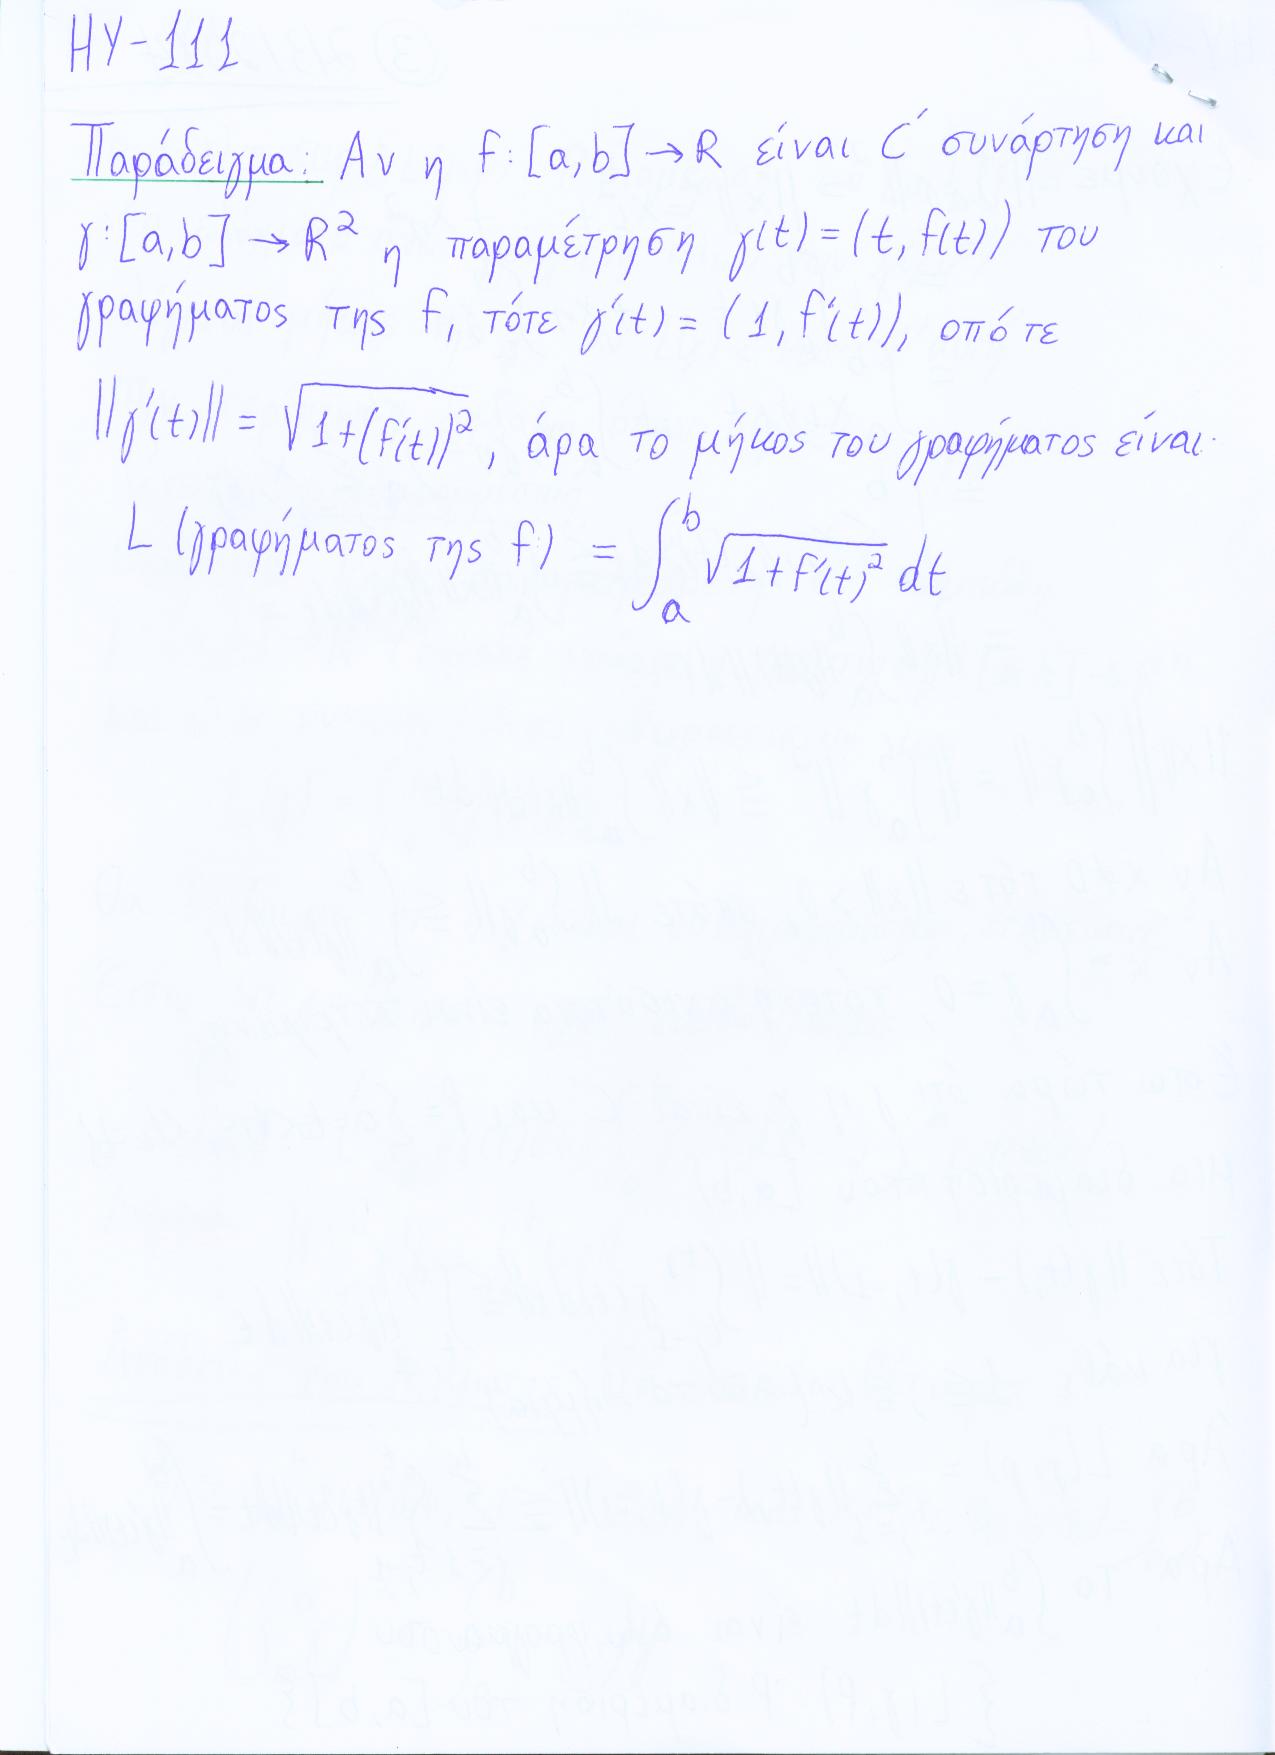 ΗΥ-111
Παράδειγμα: Αν η f:[a,b]→R είναι C' συνάρτηση και
γ:[a,b]→R² η παραμέτρηση γ(t)=(t,f(t)) του
γραφήματος της f, τότε γ'(t)=(1,f'(t)), οπότε
||γ'(t)||=√(1+(f'(t))²), άρα το μήκος του γραφήματος είναι:
L (γραφήματος της f) = ∫_a^b √(1+f'(t)²) dt